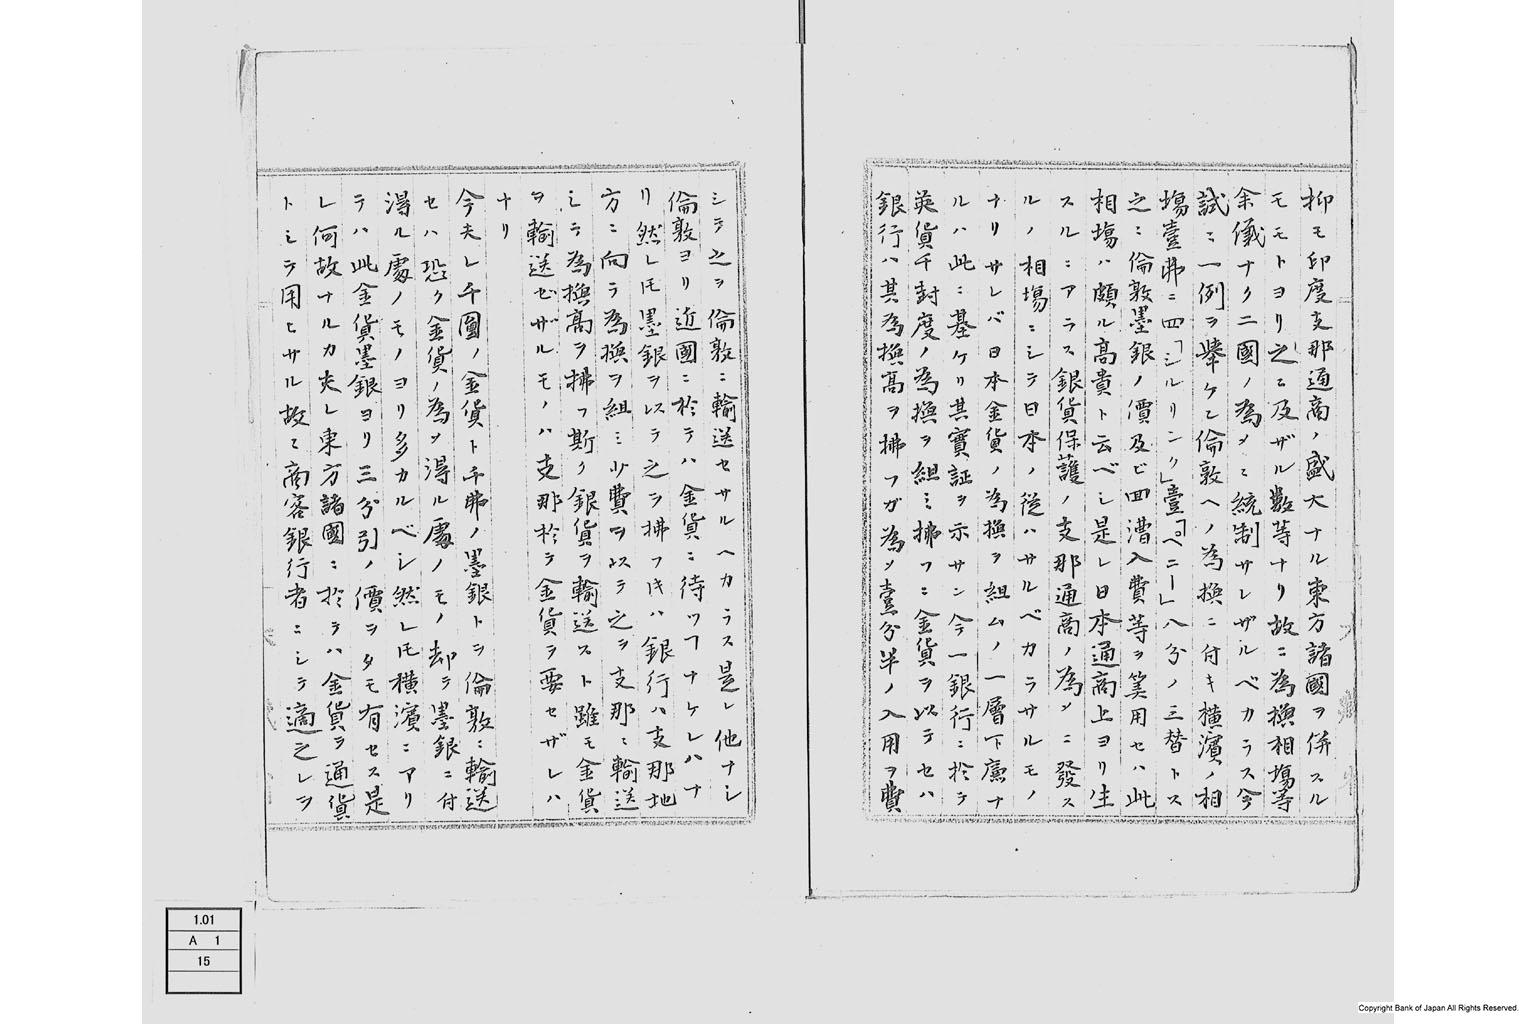 抑モ印度支那通商ノ盛大ナル東方諸國ヲ併スル
モモトヨリ之ニ及ザル數等ナリ故ニ為換相塲等
余儀ナク二國ノ為メニ統制サレザルベカラス今
試ニ一例ヲ擧ケン倫敦ヘノ為換ニ付キ横濱ノ相
塲壹弗ニ四「シルリンク」壹「ペニー」八分ノ三替トス
之ニ倫敦墨銀ノ價及ビ回漕入費等ヲ筭用セハ此
相塲ハ頗ル高貴ト云ベシ是レ日本通商上ヨリ生
スルニアラス銀貨保護ノ支那通商ノ為メニ發ス
ルノ相塲ニシテ日本ノ從ハサルベカラサルモノ
ナリサレバ日本金貨ノ為換ヲ組ムノ一層下廉ナ
ルハ此ニ基ケリ其實証ヲ示サン今一銀行ニ於テ
英貨千封度ノ為換ヲ組ミ拂フニ金貨ヲ以テセハ
銀行ハ其為換髙ヲ拂フガ為メ壹分半ノ入用ヲ費
シテ之ヲ倫敦ニ輸送セサルヘカラス是レ他ナシ
倫敦ヨリ近國ニ於テハ金貨ニ待ツヿナケレハナ
リ然レ𪜈墨銀ヲ以テ之ヲ拂フ𪜈ハ銀行ハ支那地
方ニ向テ為換ヲ組ミ少費ヲ以テ之ヲ支那ニ輸送
シテ為換髙ヲ拂フ斯ク銀貨ヲ輸送スト雖モ金貨
ヲ輸送セザルモノハ支那於テ金貨ヲ要セザレハ
ナリ
今夫レ千圓ノ金貨ト千弗ノ墨銀トヲ倫敦ニ輸送
セハ恐ク金貨ノ為メ得ル處ノモノ却テ墨銀ニ付
得ル處ノモノヨリ多カルベシ然レ𪜈横濱ニアリ
テハ此金貨墨銀ヨリ三分引ノ價ヲタモ有セス是
レ何故ナルカ夫レ東方諸國ニ於テハ金貨ヲ通貨
トシテ用ヒサル故ニ商客銀行者ニシテ適之レヲ
1.01
A 1
15
Copyright Bank of Japan All Rights Reserved.